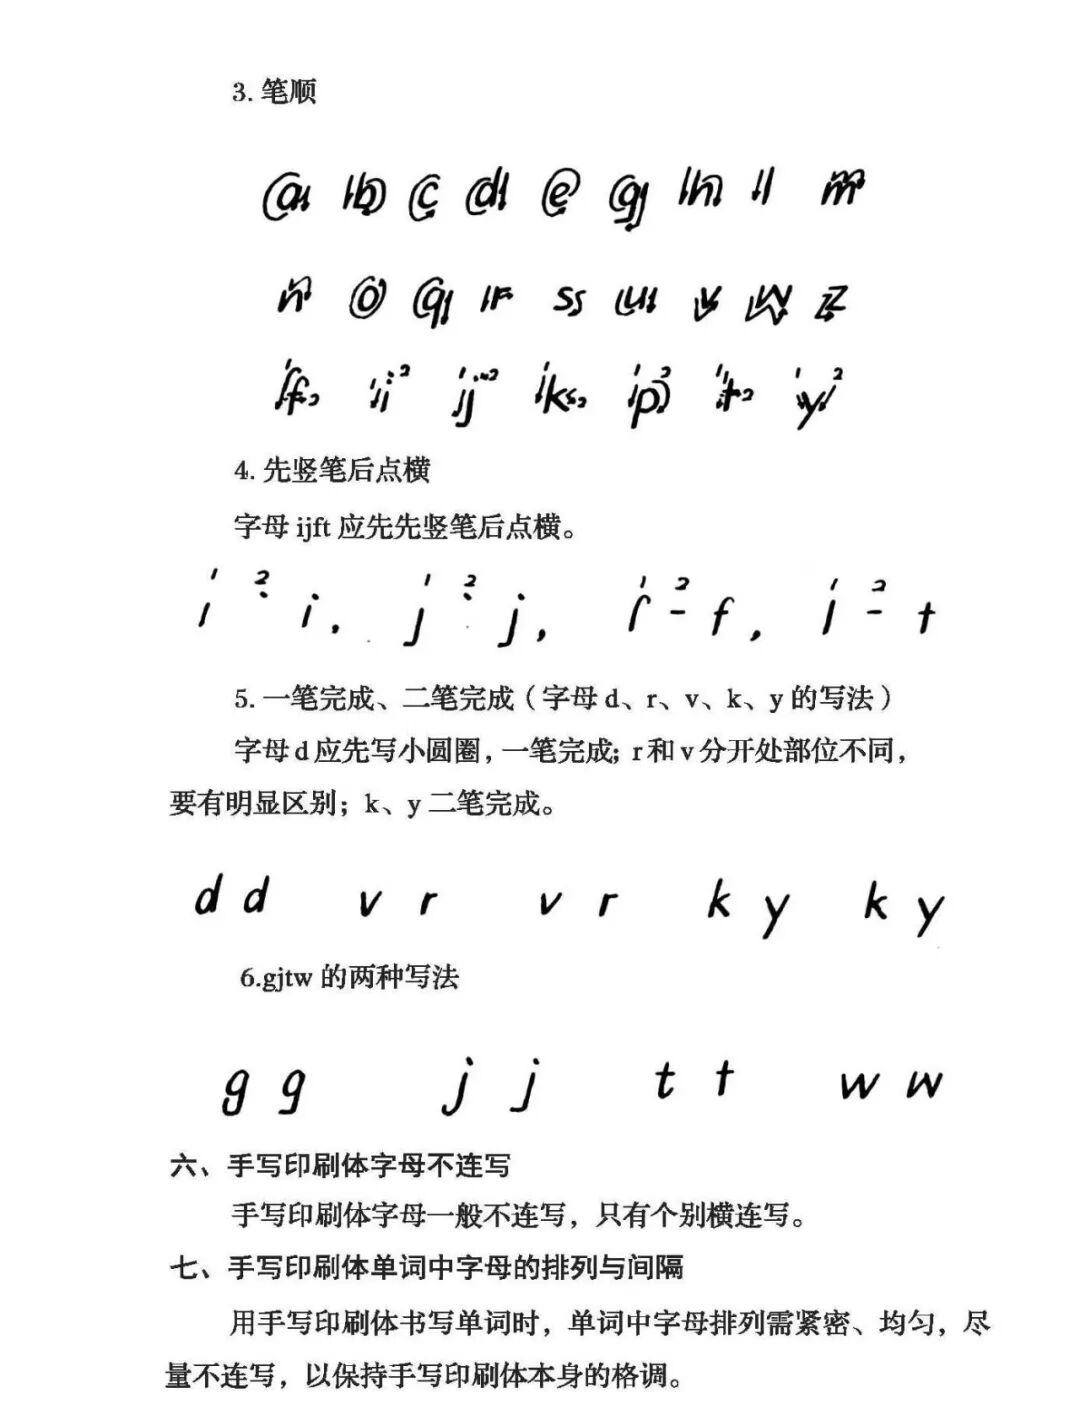 3. 笔顺
a b c d e g h l m
n o q r s u v w z
1 f 2 1 i 2 1 j 2 1 k 2 1 p 2 1 t 2 1 y 2
4. 先竖笔后点横
字母 ijft 应先先竖笔后点横。
1 2 i. 1 2 j, 1 2 f, 1 2 t
5. 一笔完成、二笔完成（字母 d、r、v、k、y 的写法）
字母 d 应先写小圆圈，一笔完成；r 和 v 分开处部位不同，
要有明显区别；k、y 二笔完成。
d d v r v r k y k y
6.gjtw 的两种写法
g g j j t t w w
六、手写印刷体字母不连写
手写印刷体字母一般不连写，只有个别横连写。
七、手写印刷体单词中字母的排列与间隔
用手写印刷体书写单词时，单词中字母排列需紧密、均匀，尽
量不连写，以保持手写印刷体本身的格调。